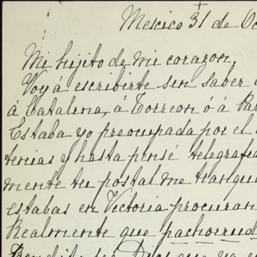 Mexico 31 de Oc
Mi hijito de mi corazon,
Voy á escribirte sin saber
á Catalina, a Torreon ó á Pa
Estaba yo preocupada por el
terias y hasta pensé telegrafia
mente tu postal me tranqui
estabas en Victoria procuran
Realmente que pachorrud
Bendito sea Dios que ya e